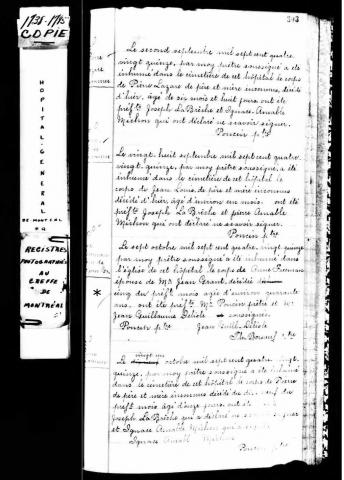 1738-1795
COPIE
HOPITAL-GENERAL
DE MONTREAL
P.Q
REGISTRES
PHOTOGRAPHIÉS
AU
GREFFE
DE
MONTRÉAL
Le second septembre mil sept cent quatre
vingt quinze, par moy prêtre soussigné a été
inhumé dans le cimetière de cet hôpital le corps
de Pierre Lazare de père et mère inconnus, décédé
d'hier, âgé de six mois et huit jours ont été
présts Joseph La Brèche et Ignace Amable
Michon qui ont déclaré ne savoir signer.
Poncin ptre
Le vingt huit septembre mil sept cent quatre
vingt quinze, par moy prêtre soussigné, a été
inhumé dans le cimetière de cet hôpital le
corps de Jean Louis de père et mère inconnus
décédé d'hier, âgé d'environ un mois. ont été
présts Joseph La Brèche et pierre Amable
Michon qui ont déclaré ne savoir signer.
Poncin ptre
Le sept octobre mil sept cent quatre vingt quinze
par moy prêtre soussigné a été inhumé dans
l'église de cet hôpital le corps de
épouse de Mr Jean Grant, décédée
cinq du présst mois âgée d'environ quarante
ans, ont été présts Mr Poncin prêtre et Mr
Jean Guillaume Delisle soussignés.
Poncin ptre Jean Guill. Delisle
*
Le vingt un octobre mil sept cent quatre vingt
quinze, par moy prêtre soussigné a été inhumé
dans le cimetière de cet hôpital le corps de Pierre
de père et mère inconnus décédé du
présst mois âgé d'onze jours, ont été
Joseph La Brèche qui a déclaré ne signer
et Ignace Amable Michon qui a
Ignace Amable Michon
Poncin ptre